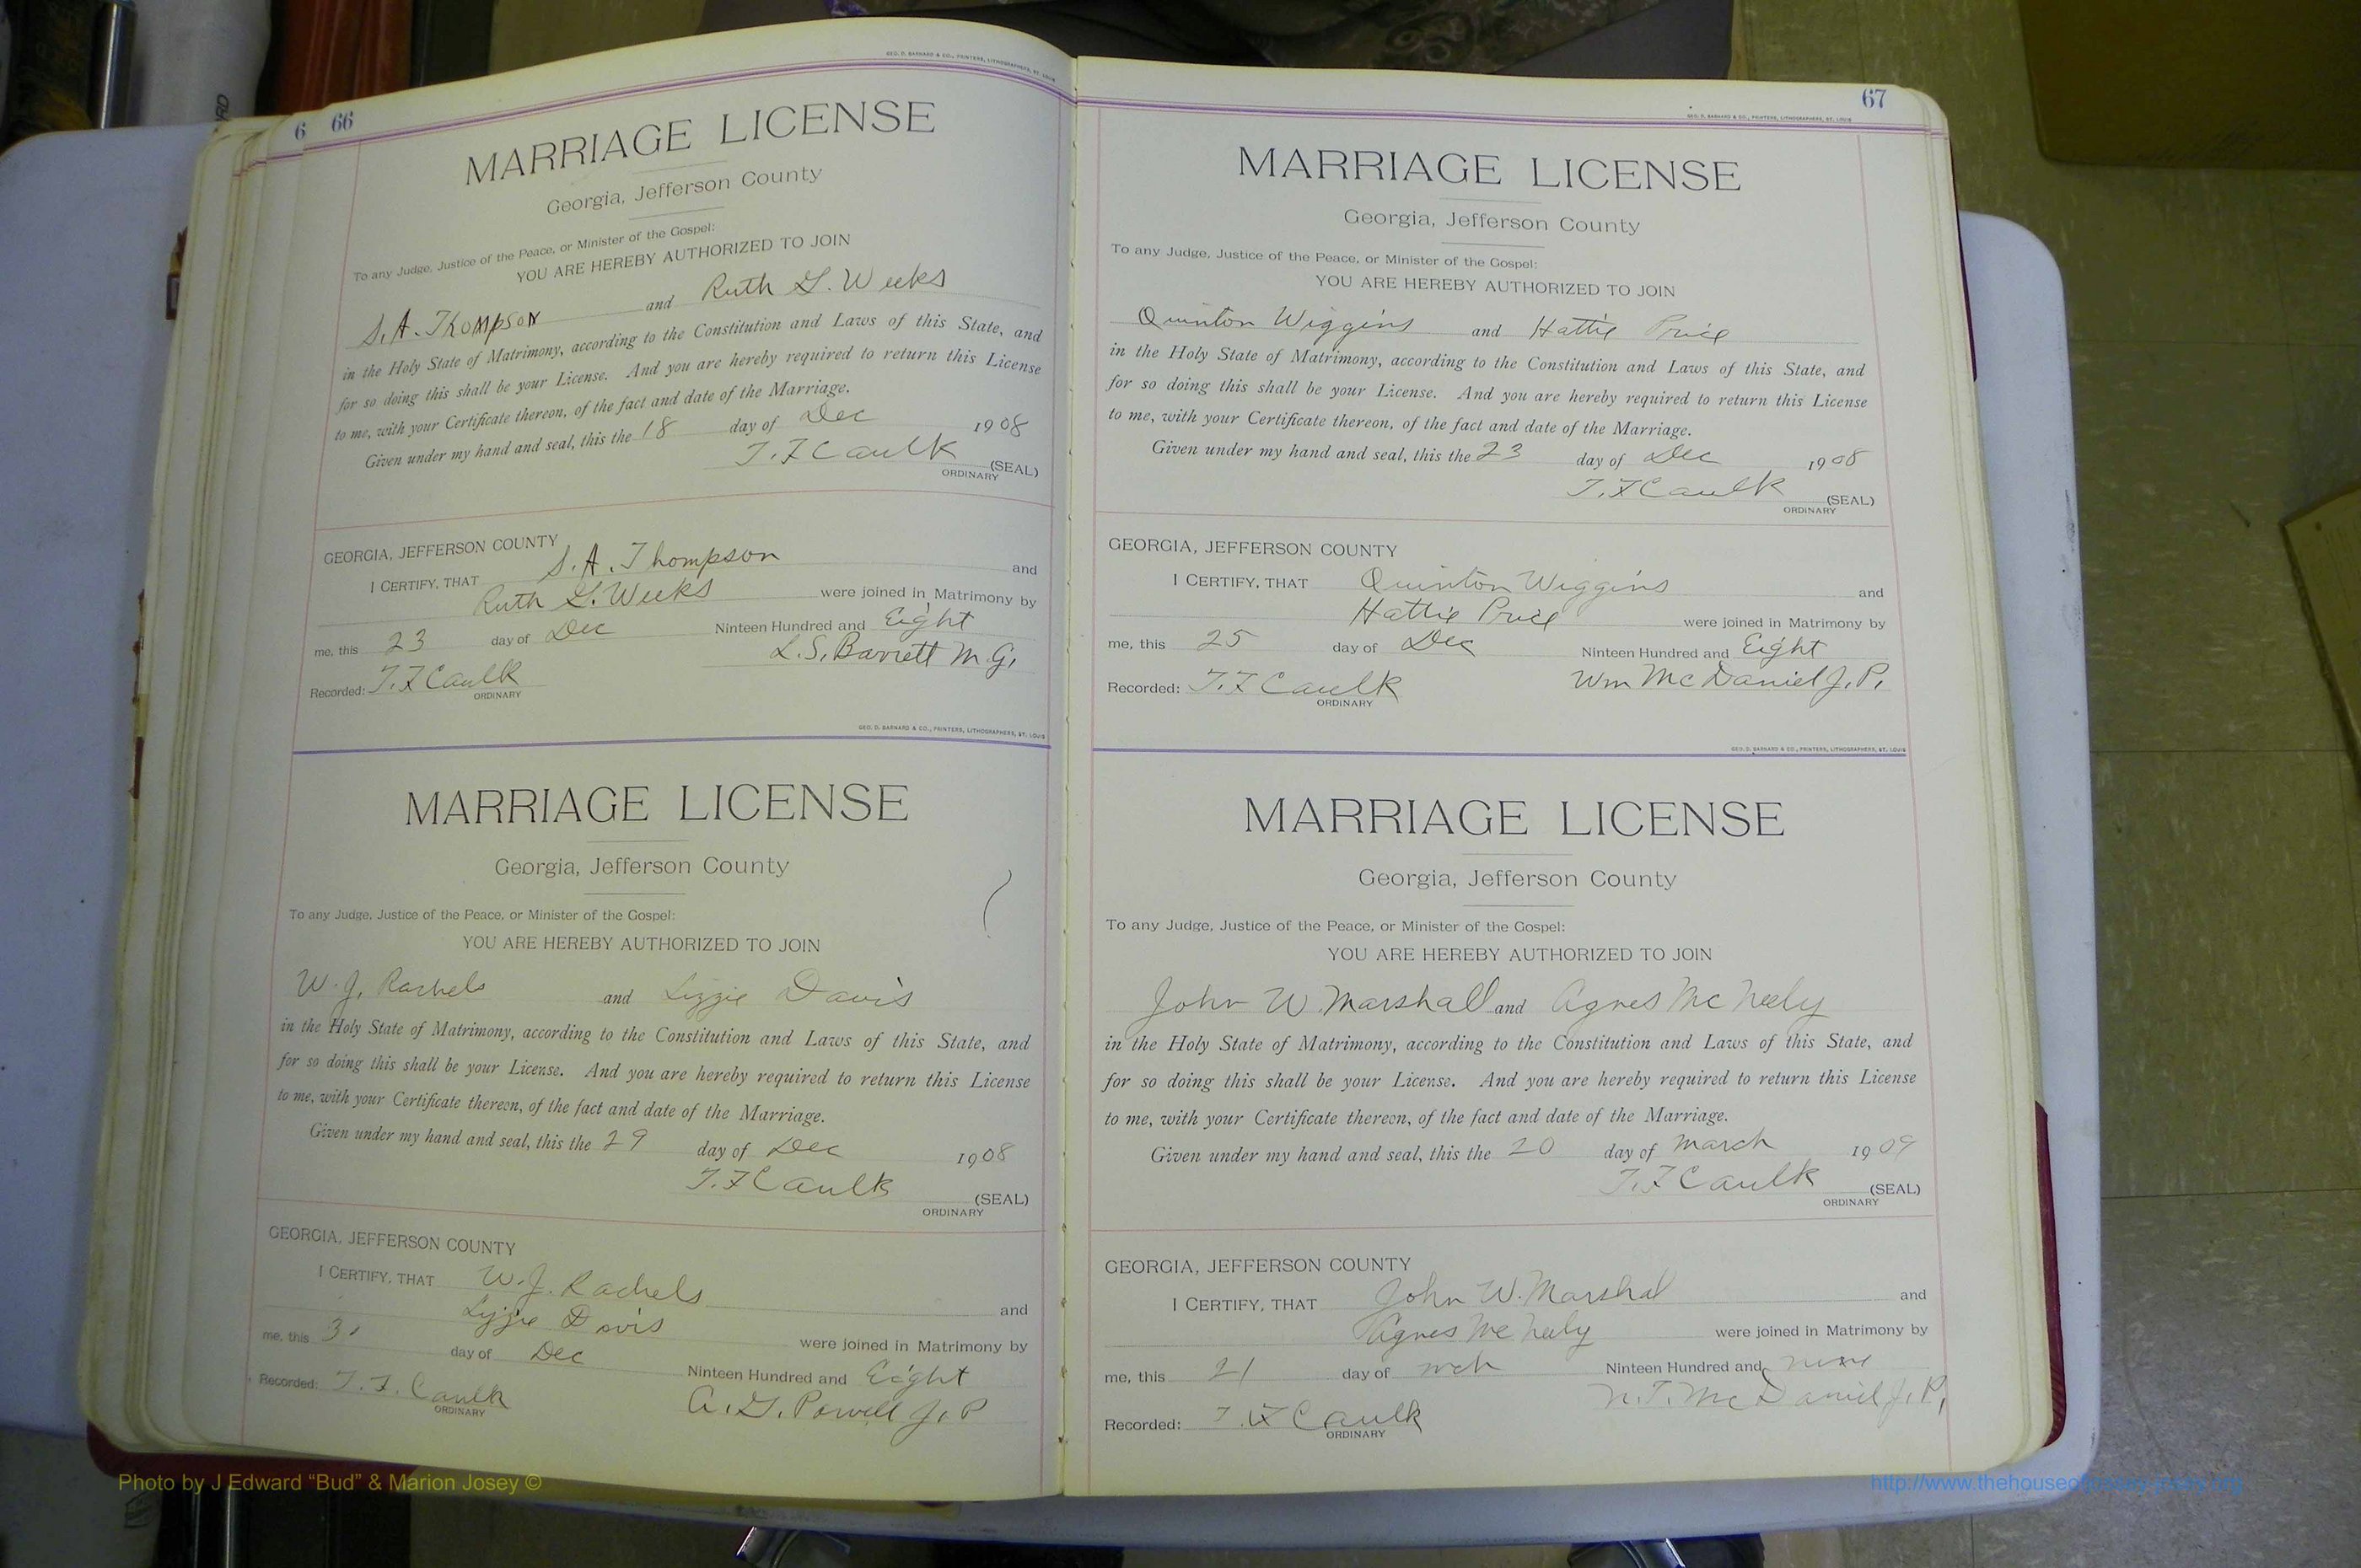 6 66
GEO. D. BARNARD & CO., PRINTERS, LITHOGRAPHERS, ST. LOUIS
MARRIAGE LICENSE
Georgia, Jefferson County
To any Judge, Justice of the Peace, or Minister of the Gospel:
YOU ARE HEREBY AUTHORIZED TO JOIN
S. A. Thompson and Ruth G. Weeks
in the Holy State of Matrimony, according to the Constitution and Laws of this State, and
for so doing this shall be your License. And you are hereby required to return this License
to me, with your Certificate thereon, of the fact and date of the Marriage.
Given under my hand and seal, this the 18 day of Dec 1908
T. F Caulk (SEAL)
ORDINARY
GEORGIA, JEFFERSON COUNTY
I CERTIFY, THAT S. A. Thompson and
Ruth G. Weeks were joined in Matrimony by
me, this 23 day of Dec Ninteen Hundred and Eight
L. S. Barrett M. G.
Recorded: T. F Caulk
ORDINARY
GEO. D. BARNARD & CO., PRINTERS, LITHOGRAPHERS, ST. LOUIS
MARRIAGE LICENSE
Georgia, Jefferson County
To any Judge, Justice of the Peace, or Minister of the Gospel:
YOU ARE HEREBY AUTHORIZED TO JOIN
W. J. Rachels and Lizzie Davis
in the Holy State of Matrimony, according to the Constitution and Laws of this State, and
for so doing this shall be your License. And you are hereby required to return this License
to me, with your Certificate thereon, of the fact and date of the Marriage.
Given under my hand and seal, this the 29 day of Dec 1908
T. F Caulk (SEAL)
ORDINARY
GEORGIA, JEFFERSON COUNTY
I CERTIFY, THAT W. J. Rachels and
Lizzie Davis were joined in Matrimony by
me, this 31 day of Dec Ninteen Hundred and Eight
A. G. Powell J. P
Recorded: T. F. Caulk
ORDINARY
67
GEO. D. BARNARD & CO., PRINTERS, LITHOGRAPHERS, ST. LOUIS
MARRIAGE LICENSE
Georgia, Jefferson County
To any Judge, Justice of the Peace, or Minister of the Gospel:
YOU ARE HEREBY AUTHORIZED TO JOIN
Quinton Wiggins and Hattie Price
in the Holy State of Matrimony, according to the Constitution and Laws of this State, and
for so doing this shall be your License. And you are hereby required to return this License
to me, with your Certificate thereon, of the fact and date of the Marriage.
Given under my hand and seal, this the 23 day of Dec 1908
T. F Caulk (SEAL)
ORDINARY
GEORGIA, JEFFERSON COUNTY
I CERTIFY, THAT Quinton Wiggins and
Hattie Price were joined in Matrimony by
me, this 25 day of Dec Ninteen Hundred and Eight
Wm McDaniel J. P.
Recorded: T. F Caulk
ORDINARY
GEO. D. BARNARD & CO., PRINTERS, LITHOGRAPHERS, ST. LOUIS
MARRIAGE LICENSE
Georgia, Jefferson County
To any Judge, Justice of the Peace, or Minister of the Gospel:
YOU ARE HEREBY AUTHORIZED TO JOIN
John W. Marshall and Agnes McNeely
in the Holy State of Matrimony, according to the Constitution and Laws of this State, and
for so doing this shall be your License. And you are hereby required to return this License
to me, with your Certificate thereon, of the fact and date of the Marriage.
Given under my hand and seal, this the 20 day of March 1909
T. F Caulk (SEAL)
ORDINARY
GEORGIA, JEFFERSON COUNTY
I CERTIFY, THAT John W. Marshal and
Agnes McNeely were joined in Matrimony by
me, this 21 day of mch Ninteen Hundred and nine
N. T. McDaniel J. P.
Recorded: T. F Caulk
ORDINARY
Photo by J Edward “Bud” & Marion Josey ©